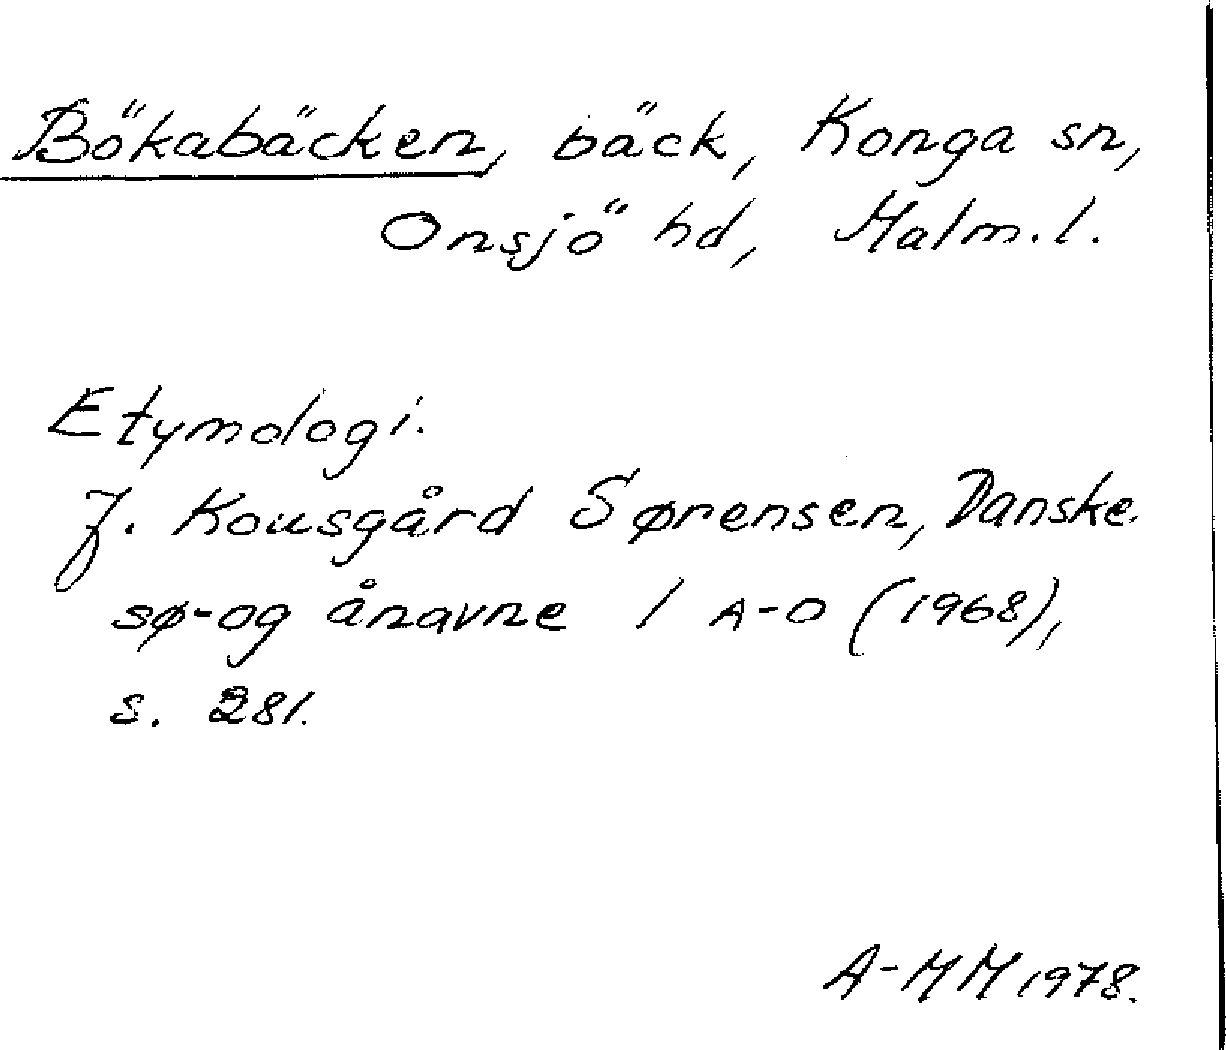 Bökabäcken, bäck, Konga sn,
Onsjö hd, Malm.l.
Etymologi.
J. Kousgård Sørensen, Danske
sø-og ånavne 1 A-O (1968),
s. 281.
A-MM 1978.